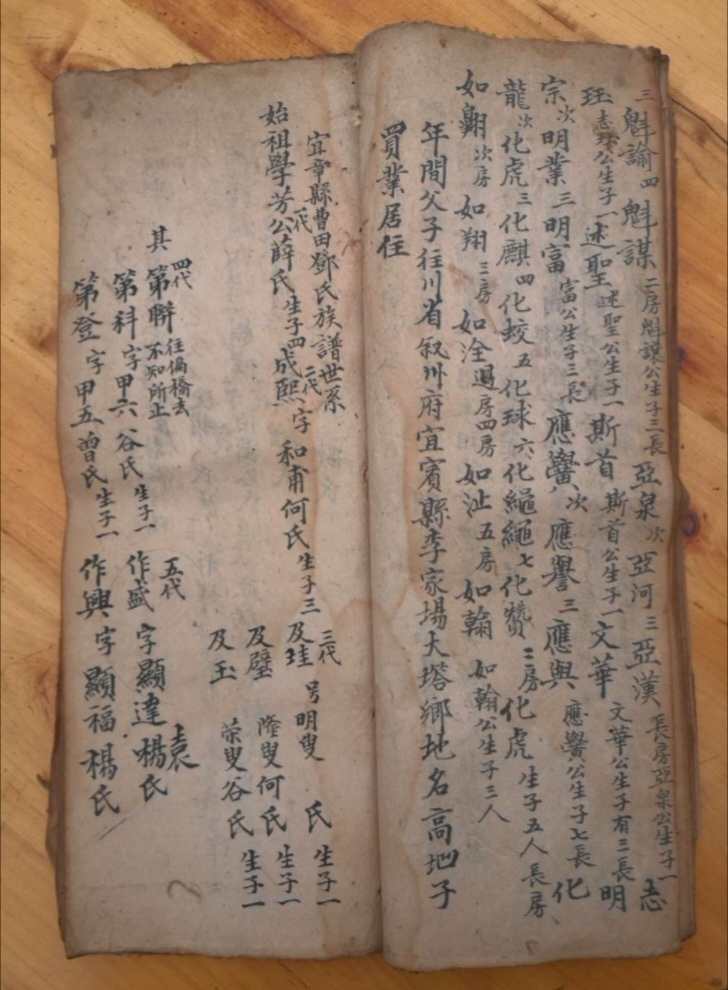 三魁諭四魁謀二房魁謀公生子三長亞泉次亞河三亞漢長房亞泉公生子一志
珏志珏公生子一述聖述聖公生子一斯首斯首公生子一文華文華公生子有三長明
宗次明業三明富富公生子三長應黌次應譽三應與應黌公生子七長化
龍次化虎三化麒四化蛟五化球六化繩繩七化贊二房化虎生子五人長房
如翱次房如翔三房如洤過房四房如沚五房如翰如翰公生子三人
年間父子往川省叙州府宜賓縣李家場大塔鄉地名高地子
買業居住
宜章縣曹田鄧氏族譜世系
始祖學芳公薛氏生子四二代成熙字和甫何氏生子三
三代
及珪号明叟 氏生子一
及璧 隆叟何氏生子一
及玉 荣叟谷氏生子一
其四代第聨往偏橋去不知所止
第科字甲六谷氏生子一五代作盛字顯達楊氏袁
第登字甲五曾氏生子一作興字顯福楊氏